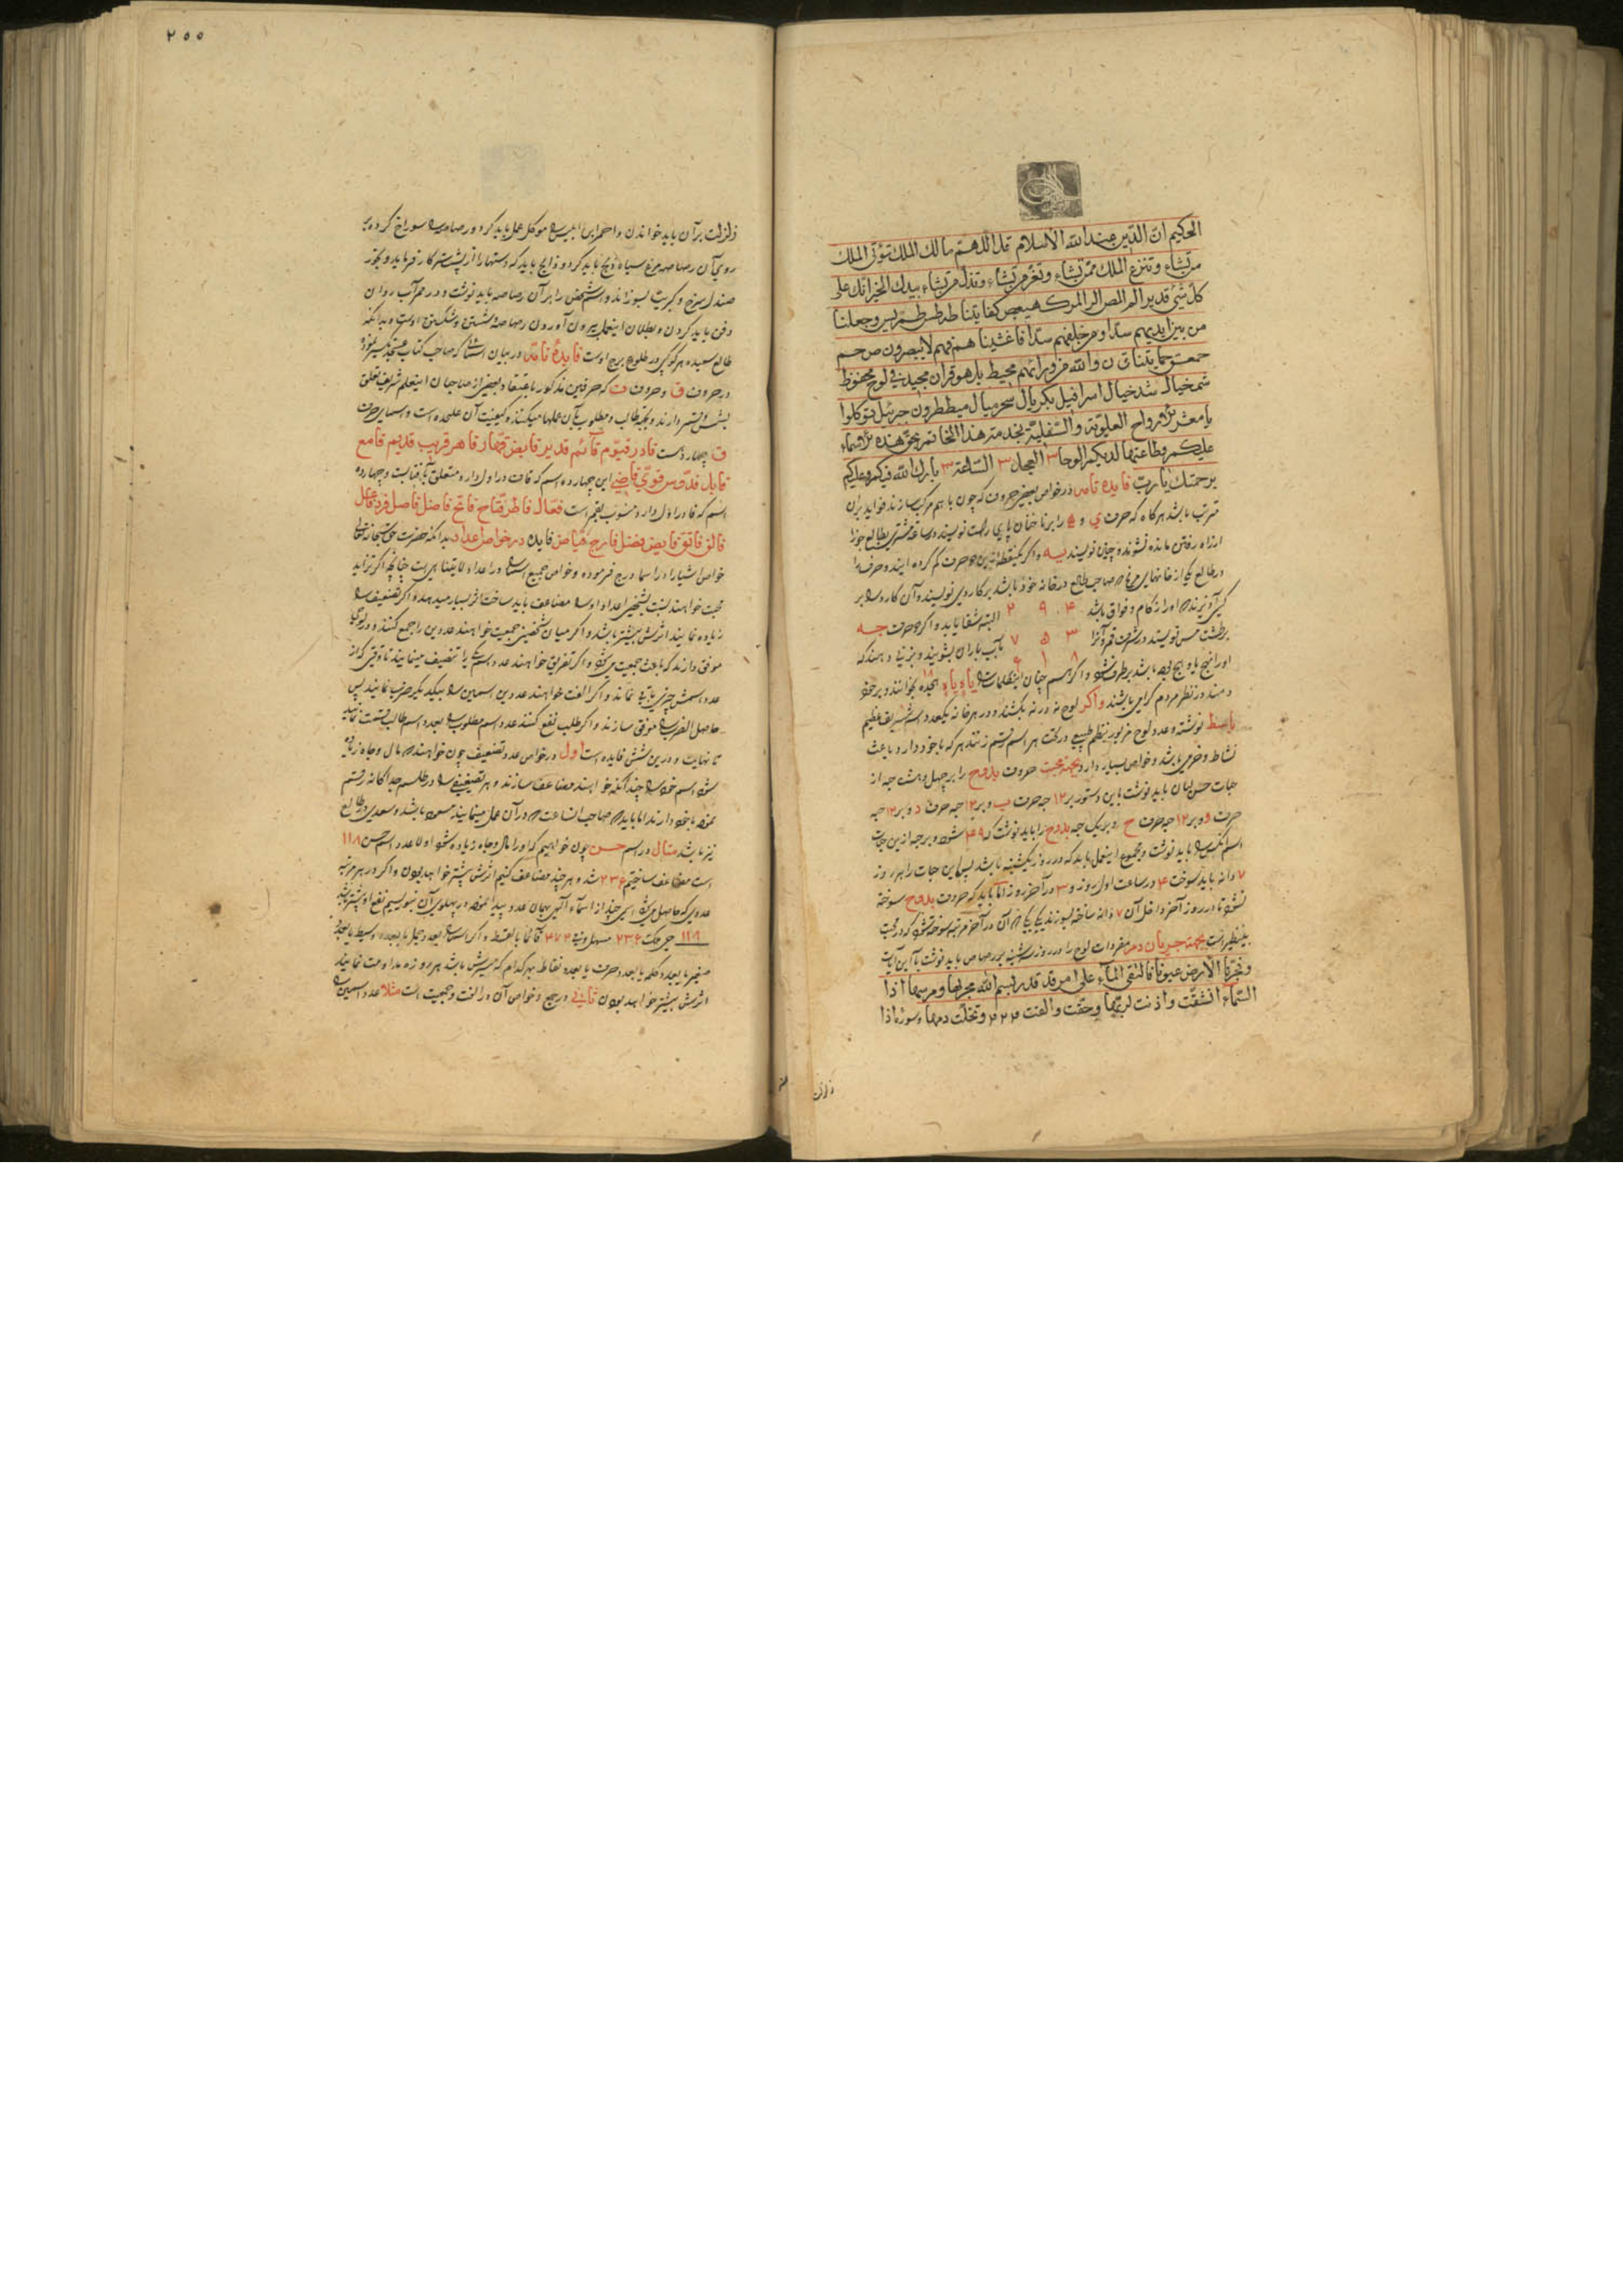 الحکیم انّ الدّین عند الله الاسلام قل اللّهمّ مالک الملک تؤتی الملک
من تشاء و تنزع الملک ممّن تشاء و تعزّ من تشاء و تذلّ من تشاء بیدک الخیر انّک علی
کلّ شئ قدیر الم المص الر المر کهیعص کفایتنا طه طس طسم یس و جعلنا
من بین ایدیهم سدّا و من خلفهم سدّا فاغشیناهم فهم لا یبصرون ص حم
حمعسق حمایتنا ق ن والله من ورائهم محیط بل هو قرآن مجید فی لوح محفوظ
شمخیال شدخیال اسرافیل بکریال میططرون جبرئیل توکلوا
یا معشر الارواح العلویّة و السّفلیّة بخدمة هذا الخاتم بحقّ هذه الاسماء
علیکم و طاعتها لدیکم الوحا ٣ العجل ٣ السّاعة ٣ بارک الله فیکم و علیکم
برحمتک یا ربّ فایده تامه در خواص بعضی حروف که چون با هم مرکب سازند فواید بران
مترتب باشد هرگاه که حرف ی و ه را بر ناخنان پای راست نویسند
از راه رفتن مانده نشوند و چنان نویسند یه و اکر
در طالع یکی از خانهای صاحب طالع در خانه خود باشد بر کاردی نویسند و آن کارد را بر
کسی آویزند که او را زکام و فواق باشد ۴ ٩ ٢ البته شفا یابد و اکر دو حرف جه
بر طشت مس نویسند در شرف قمر و آنرا ٣ ۵ ٧ بآب باران بشویند و دهند که
٨ ١ ۶
او را باشد برطرف شود و اکر
دهند در نظر مردم گرامی باشند و اکر لوح نه در نه بکشند و در هر خانه یکعدد اسم شریف عظیم
باسط نوشته و عدد لوح مزبور بنظم طبیعی در تحت هر اسم رقم زنند هر که با خود دارد باعث
نشاط و خرمی باشد و خواص بسیار دارد بجهة محبت حروف بدوح را بر چهل و هشت حبه از
حبات حسن لبان باید نوشت باین دستور بر ١٢ حبه حرف ب و بر ١٢ حبه حرف د و بر ١٢ حبه
حرف و و بر ١٢ حبه حرف ح و بر یک حبه بدوح را باید نوشت که ۴٩ شود و بر حبه ازین حبات
اسم باید نوشت و مجموع اینعمل باید که در روز یکشنبه باشد پس این حبات را هر روز
٧ دانه باید سوخت ۴ در ساعت اول روز و ٣ در آخر روز اما باید که حروف بدوح سوخته
نشود تا در روز آخر داخل آن ٧ دانه ساخته بسوزند
بینظیر است بجهة جریان دم مفردات لوح را در روز سه شنبه بر رصاص باید نوشت با این آیات
و فجّرنا الارض عیونا فالتقی المآء علی امر قد قدر بسم الله مجریها و مرسیها اذا
السّمآء انشقّت و اذنت لربّها و حقّت و القت و تخلّت دمها و سوره اذا
زلزلت
٢۵۵
زلزلت بر آن باید خواندن و احمر ابی ابلیس را موکل عمل باید کرد و رصاص را سوراخ کرده بر
روی آن رصاصه مرغ سیاه ذبح باید کرد و ذابح باید که دستها را از پشت سر کار فرماید و بخور
صندل سرخ و کبریت بسوزاند و اسم شخص را بر آن رصاصه باید نوشت و در ممر آب روان
دفن باید کردن و بطلان اینعمل بیرون آوردن رصاصه و شستن و شکستن اوست و بدانکه
طالع سعیده هر کوکبی در طلوع برج اوست فایدهٔ تامه در بیان
در حروف ق و حروف ف که حرفین مذکور باعتقاد بعضی از صاحبان اینعلم شریف تعلق
بشمس و قمر دارند و بجهة طالب و مطلوب بآن عملها میکنند و کیفیت آن علیحده است و اسمای حرف
ق چهارده است قادر قیّوم قآئم قدیر قابض قهّار قاهر قریب قدیم قامع
قابل قدّوس قویّ قاضی این چهارده اسم که قاف در اول دارد متعلق بآفتابست و چهارده
اسم که فا در اول دارد منسوب بقمر است فعّال فاطر فتّاح فاتح فاضل فاصل فرد فاعل
فالق فاتق فایض فضل فارج فیّاض فایده در خواص اعداد بدانکه حضرت حق سبحانه تعالی
خواص اشیا را در اسما درج فرموده و خواص جمیع اشیا در اعداد
محبت خواهند اعداد او را مضاعف باید ساخت اثر بسیار میدهد و اکر تضعیف را
زیاده نمایند اثرش بیشتر باشد و اکر میان شخصین جمعیت خواهند عددین را جمع کنند و در لوحی
موفق دارند که باعث جمعیت میشود و اکر تفریق خواهند عدد اسم یکی را تنصیف مینمایند تا وقتی که از
عدد اسمش چیزی باقی نماند و اکر الفت خواهند عددین اسمین را بیکدیگر ضرب نمایند پس
حاصل الضرب را موفق سازند و اکر طلب نفع کنند عدد اسم مطلوب را بعدد اسم طالب قسمت نمایند
تا نهایت و درین شش فایده است اول در خواص عدد تضعیف چون خواهند که مال و جاه زیاد
شود اسم خود را چندانکه خواهند مضاعف سازند و هر تضعیفی را در طلسم جداکانه رقم
نموده با خود دارند اما باید که صاحب الساعت که در آن عمل مینمایند مسعود باشد و سعدی در طالع
نیز باشد مثال در اسم حسن چون خواهیم که او را مال و جاه زیاده شود اولا عدد اسم حسن ١١٨
است مضاعف ساختیم ٢٣۶ شد و هر چند مضاعف کنیم اثرش بیشتر خواهد بودن و اکر در هر مرتبه
عددی که حاصل میشود اسمی چند از اسمآء الهی بهمان عدد پیدا نموده در پهلوی آن بنویسیم نفع او بیشتر باشد
١١٨ ٢٣۶ ۴٧٢
صغیر یا بعدد کلمه یا بعدد حرف یا بعدد نقاط بهر کدام که میسرش باشد هر روزه مداومت نمایند
اثرش بیشتر خواهد بودن ثانی در جمع و خواص آن در الفت و جمعیت است مثلا عدد اسمین را